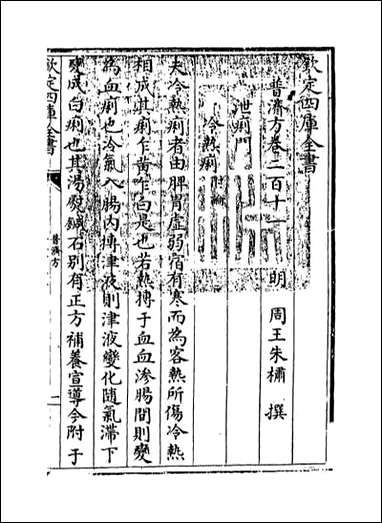 欽定四庫全書
普濟方卷二百十一
明 周王朱橚 撰
泄痢門
冷熱痢附論
夫冷熱痢者由脾胃虛弱宿有寒而為客熱所傷冷熱
相成其痢乍黄乍白是也若熱搏于血血滲腸間則變
為血痢也冷氣入腸内搏津液則津液變化隨氣滯下
變成白痢也其湯熨鍼石别有正方補養宣導今附于
欽定四庫全書
普濟方
一